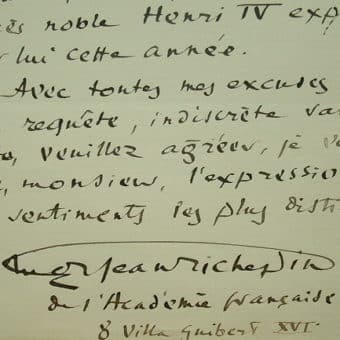 ès noble Henri IV exp
lui cette année.
Avec toutes mes excuses
requête, indiscrète
veuillez agréer, je
monsieur, l'expressio
sentiments les plus disti
Jean richepin
de l'Académie française
8 Villa Guibert XVIe